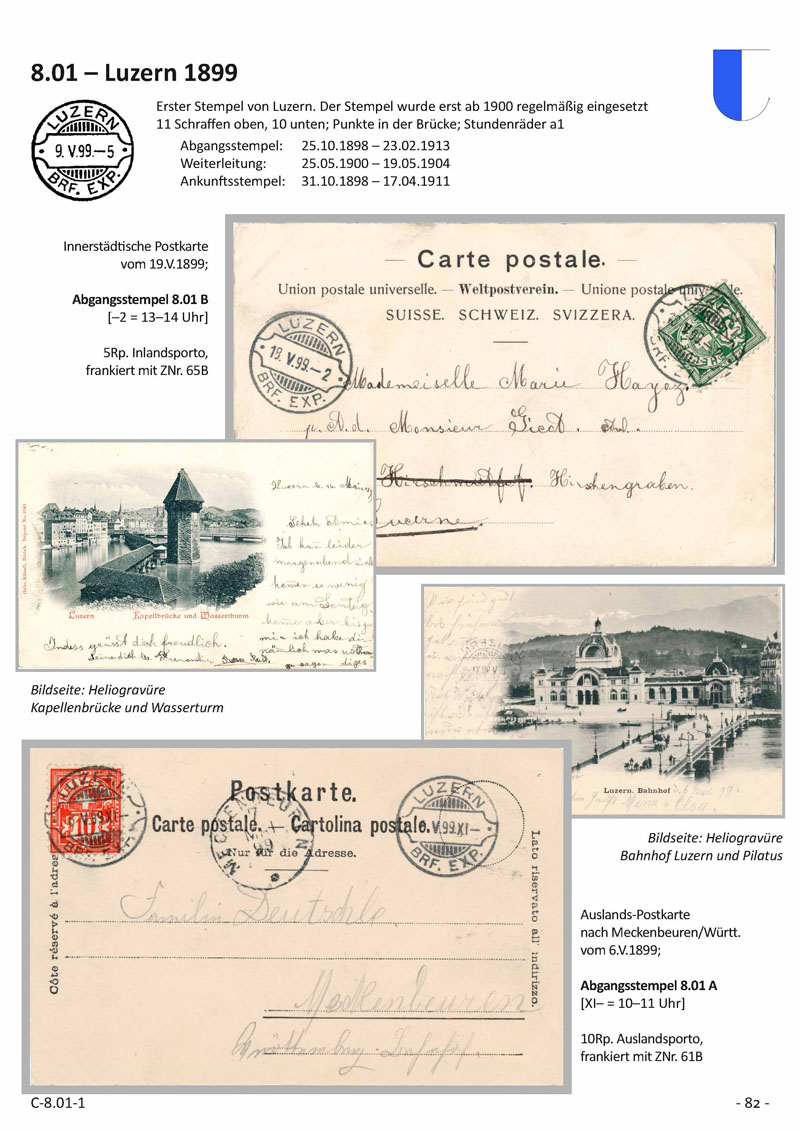 8.01 – Luzern 1899
Erster Stempel von Luzern. Der Stempel wurde erst ab 1900 regelmäßig eingesetzt
11 Schraffen oben, 10 unten; Punkte in der Brücke; Stundenräder a1
Abgangsstempel: 25.10.1898 – 23.02.1913
Weiterleitung: 25.05.1900 – 19.05.1904
Ankunftsstempel: 31.10.1898 – 17.04.1911
LUZERN
9. V.99.–5
BRF. EXP.
Innerstädtische Postkarte
vom 19.V.1899;
Abgangsstempel 8.01 B
[–2 = 13–14 Uhr]
5Rp. Inlandsporto,
frankiert mit ZNr. 65B
— Carte postale. —
Union postale universelle. — Weltpostverein. — Unione postale universale.
SUISSE. SCHWEIZ. SVIZZERA.
LUZERN
19. V.99.–2
BRF. EXP.
Mademoiselle Marie Hayoz.
p. Ad. Monsieur Gicot.
Hirschengraben.
Lucerne.
Luzern
Kapellbrücke und Wasserthurm
Indess grüsst dich freundlich.
Bildseite: Heliogravüre
Kapellenbrücke und Wasserturm
Luzern. Bahnhof
Bildseite: Heliogravüre
Bahnhof Luzern und Pilatus
Postkarte.
Carte postale. — Cartolina postale.
Nur für die Adresse.
Côté réservé à l'adres
Lato riservato all' indirizzo.
LUZERN
V.99.XI–
BRF. EXP.
LUZERN
V.99.XI–
BRF. EXP.
MECKENBEUREN
10
Familie Deutschle.
Meckenbeuren
Württemberg
Auslands-Postkarte
nach Meckenbeuren/Württ.
vom 6.V.1899;
Abgangsstempel 8.01 A
[XI– = 10–11 Uhr]
10Rp. Auslandsporto,
frankiert mit ZNr. 61B
C-8.01-1
- 82 -